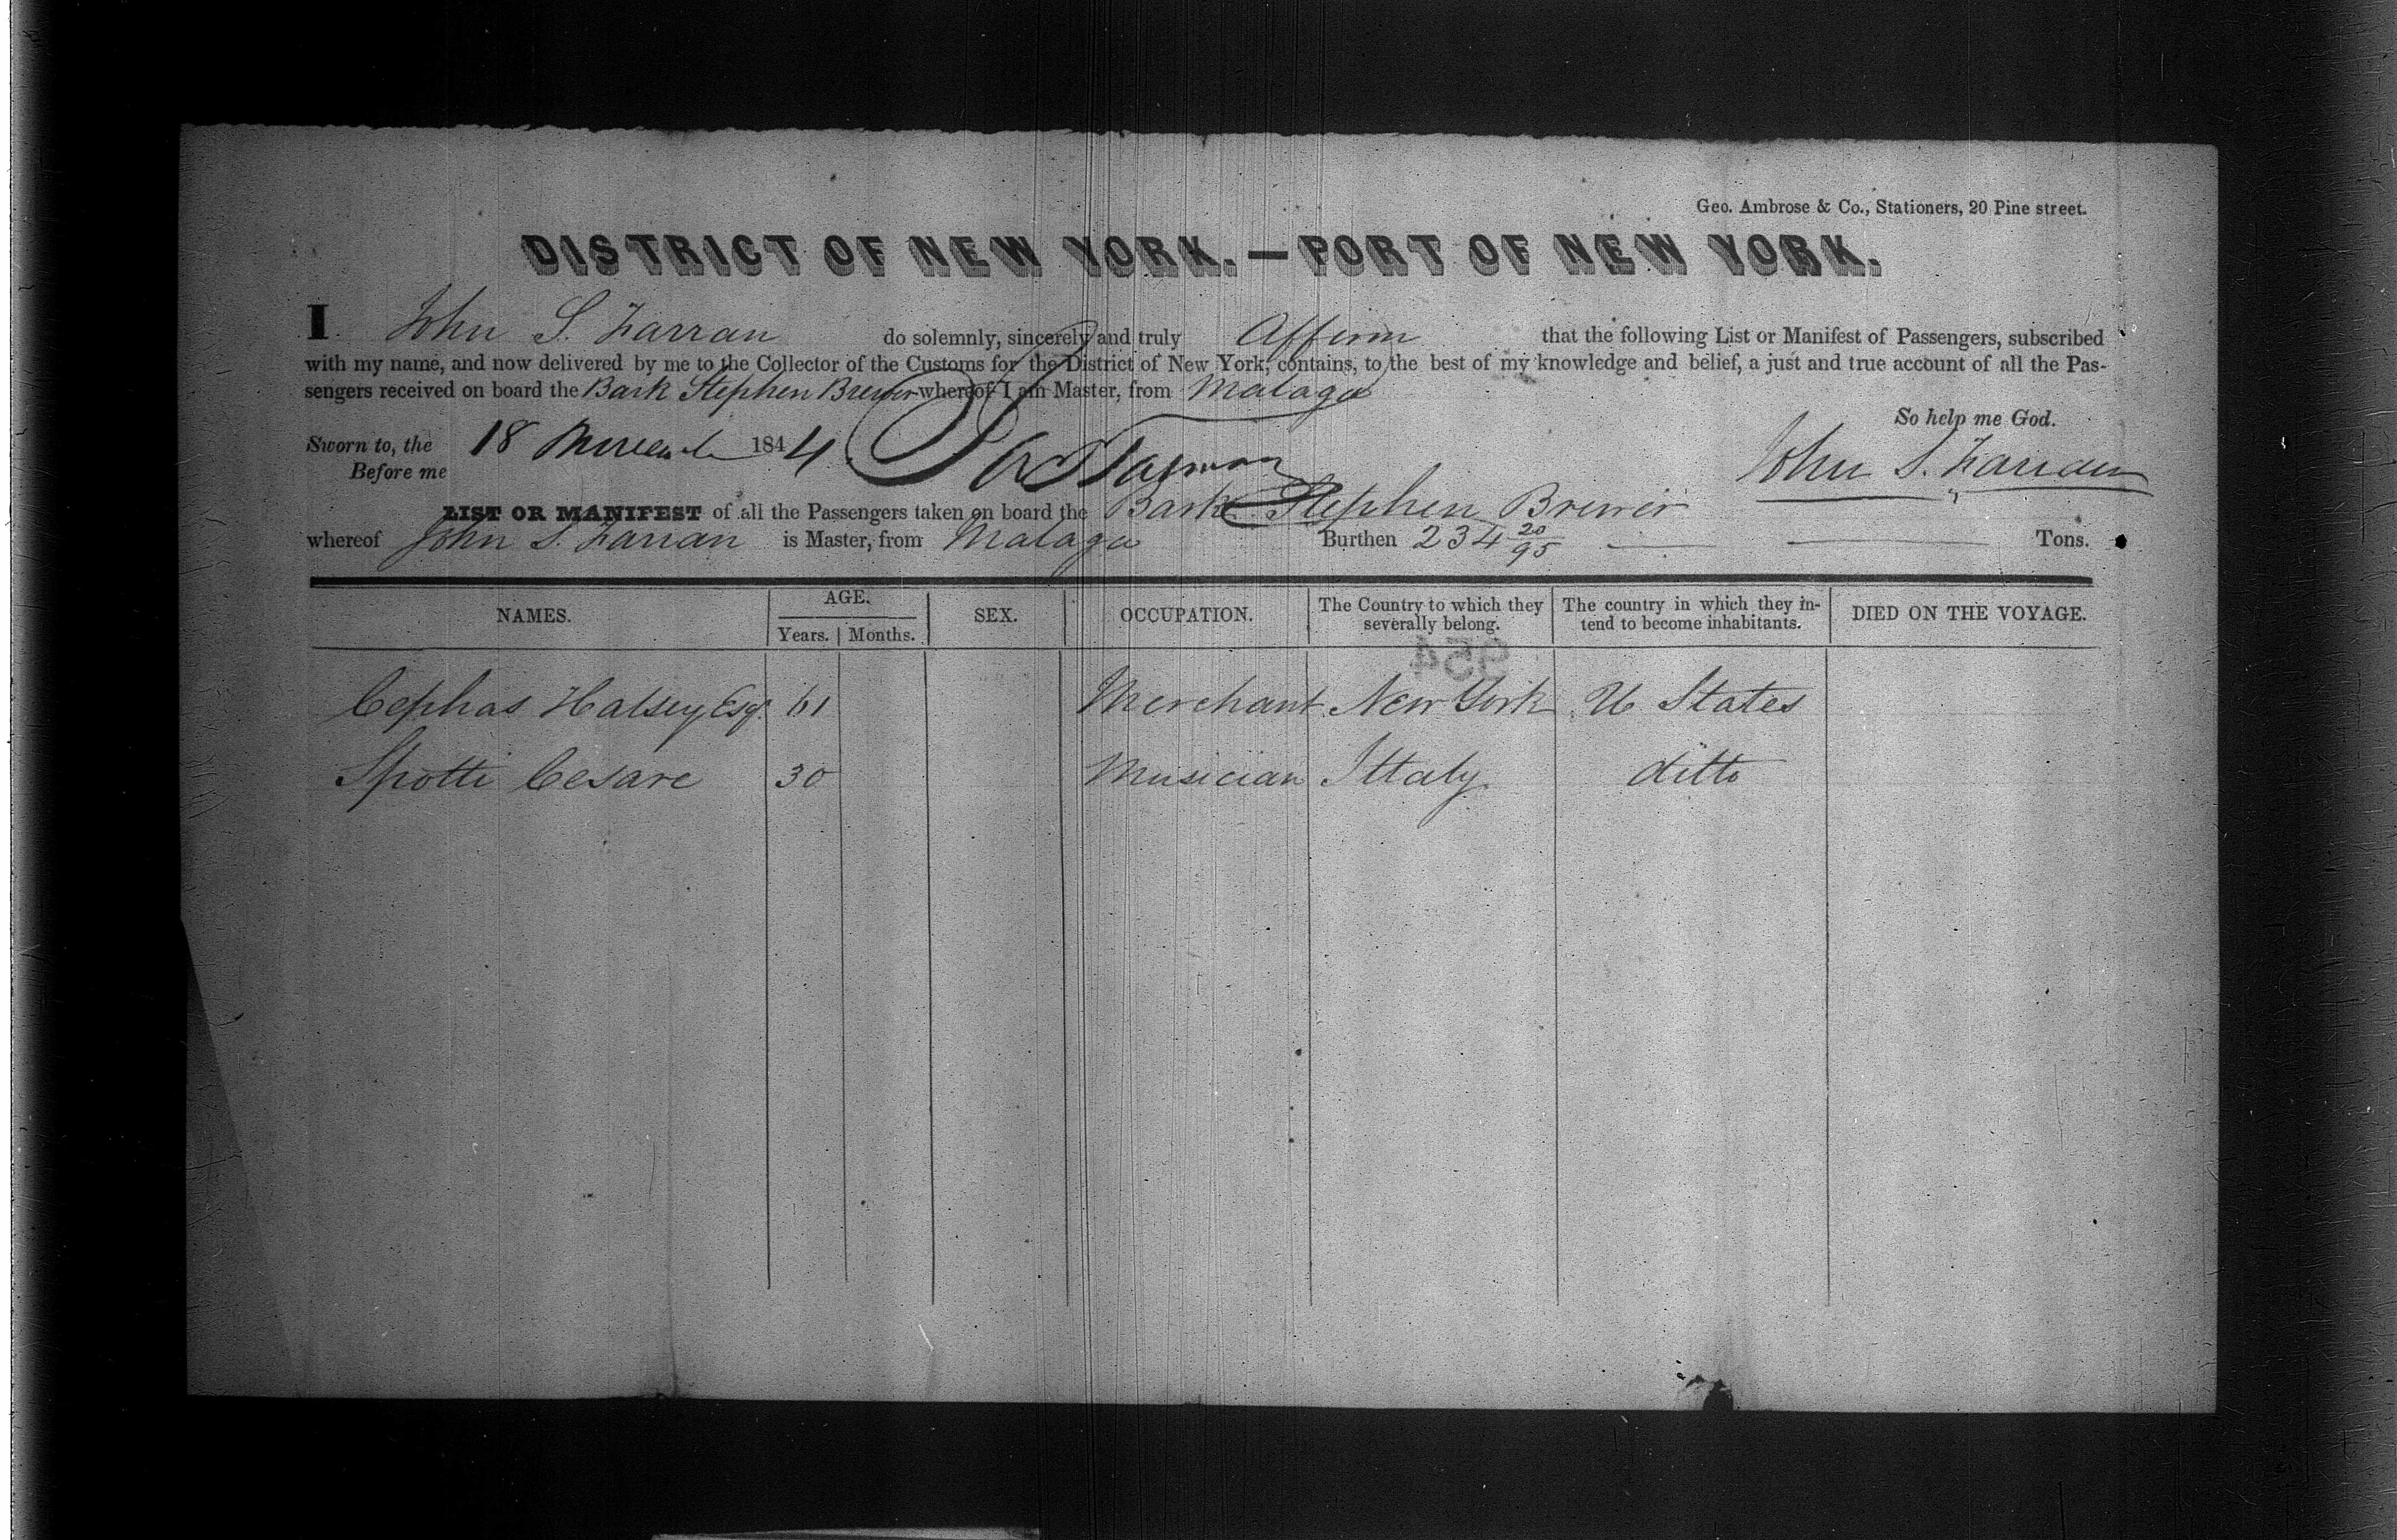 Geo. Ambrose & Co., Stationers, 20 Pine street.
DISTRICT OF NEW YORK.—PORT OF NEW YORK.
I John S. Farran do solemnly, sincerely and truly Affirm that the following List or Manifest of Passengers, subscribed
with my name, and now delivered by me to the Collector of the Customs for the District of New York, contains, to the best of my knowledge and belief, a just and true account of all the Pas-
sengers received on board the Bark Stephen Brewer whereof I am Master, from Malaga
So help me God.
Sworn to, the 18 1844 John S. Farran
Before me
LIST OR MANIFEST of all the Passengers taken on board the Bark Stephen Brewer
whereof John S. Farran is Master, from Malaga Burthen 234 20/95 Tons.
NAMES. AGE. SEX. OCCUPATION. The Country to which they severally belong. The country in which they in-tend to become inhabitants. DIED ON THE VOYAGE.
Years. Months.
954
Cephas Halsey Esqr. 61 Merchant New York U States
Spotti Cesare 30 Musician Ittaly ditto